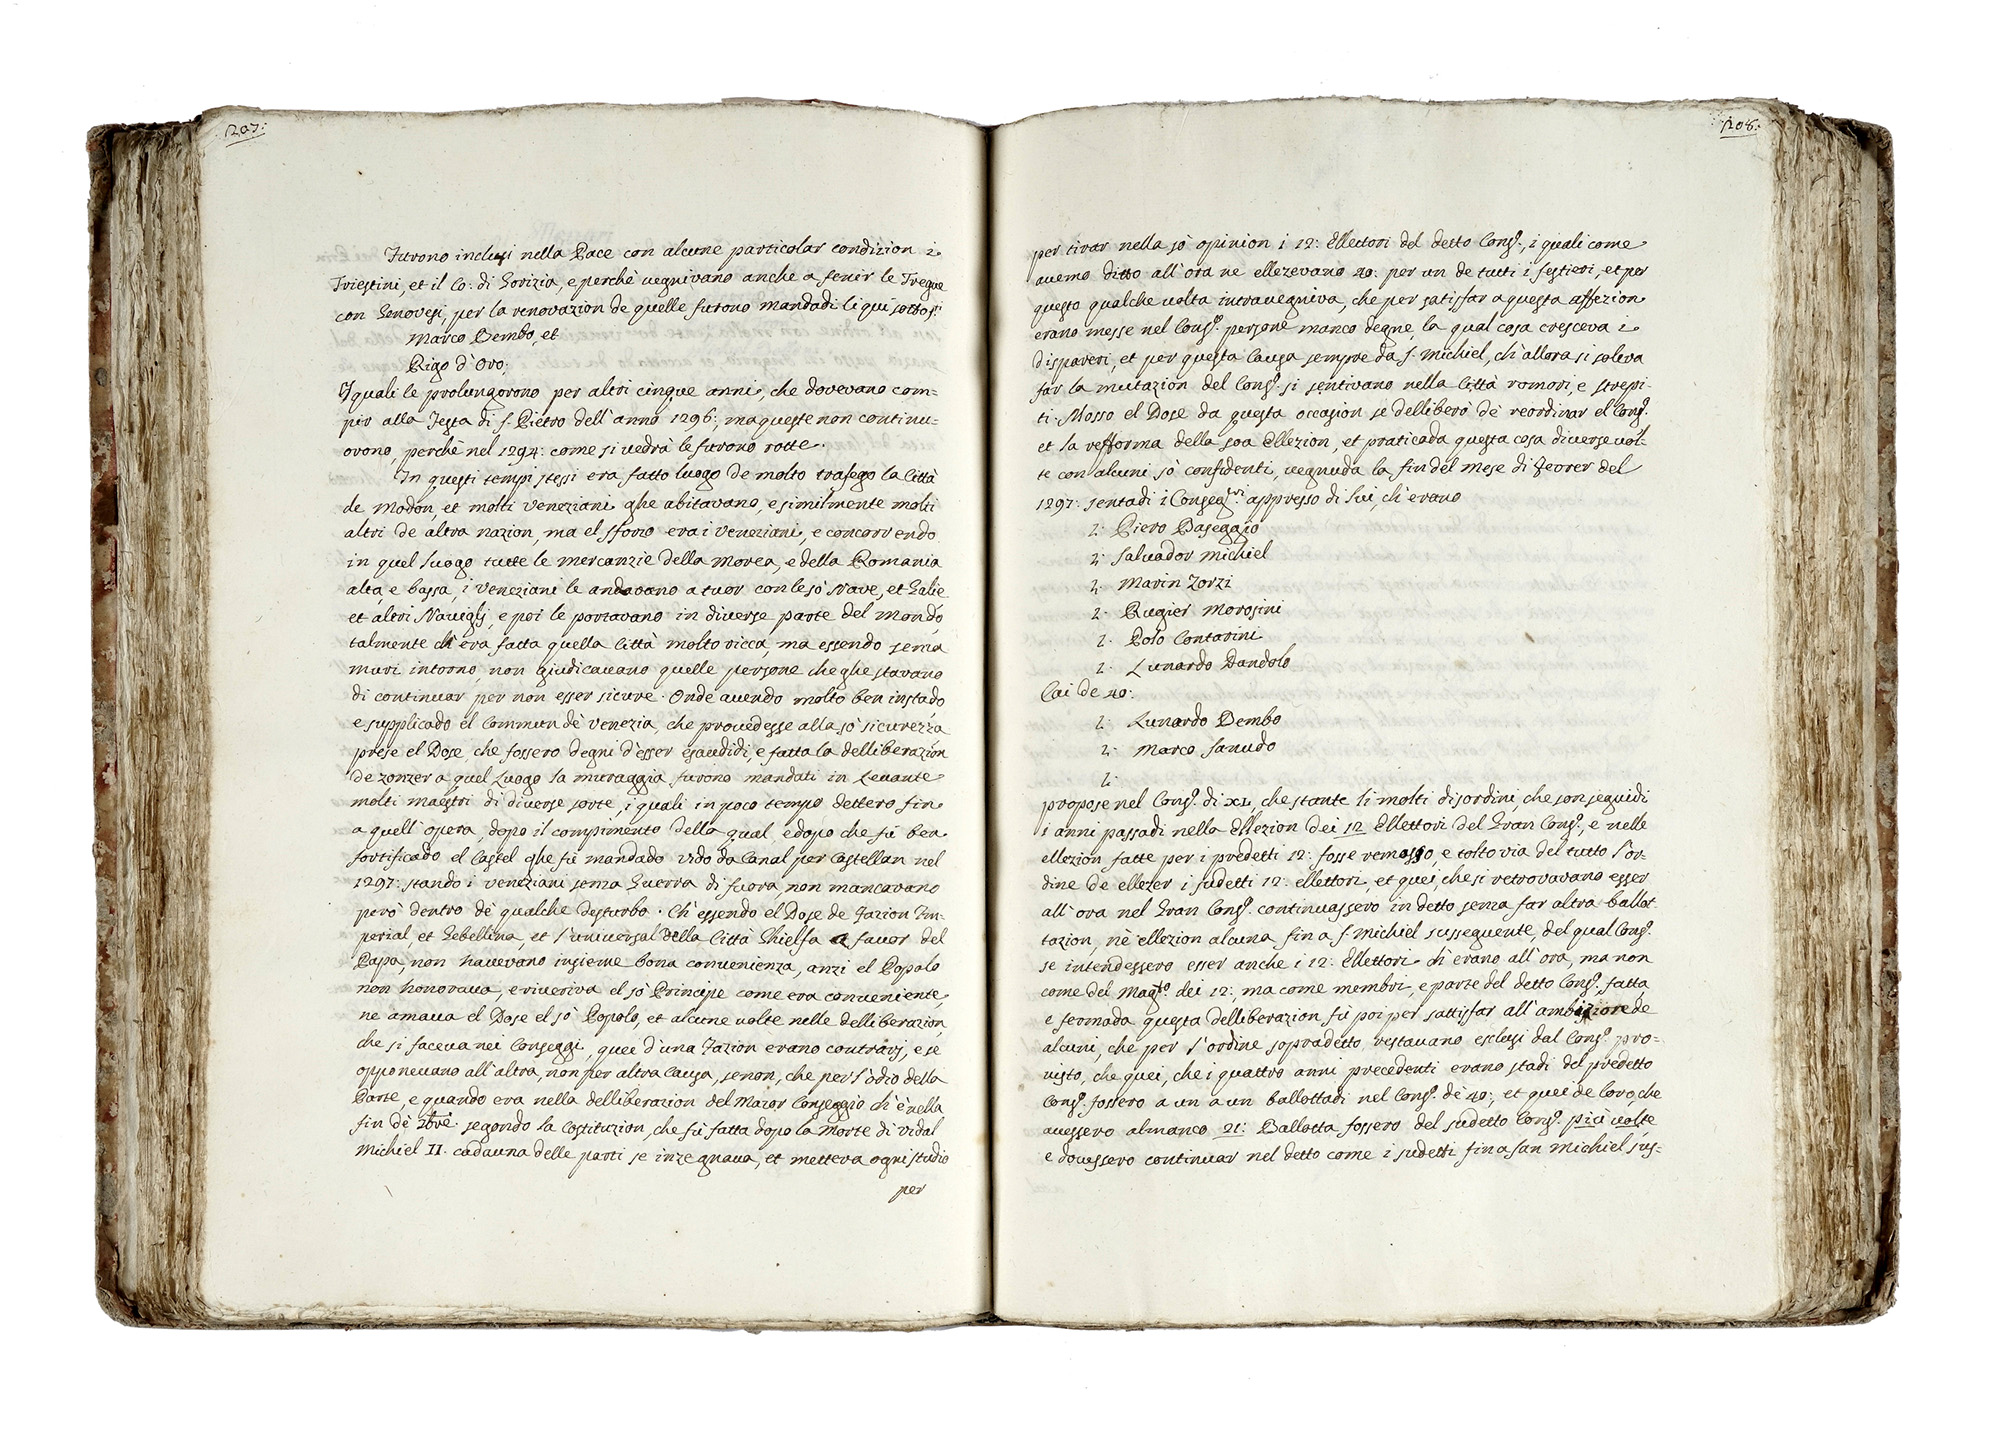 207:
Furono inclusi nella Pace con alcune particolar condizion i
Triestini, et il Co: di Gorizia, e perchè vegnivano anche a fenir le Tregue
con Genovesi, per la renovazion de quelle furono mandadi li qui sottosti
Marco Bembo, et
Rigo d'Oro;
I quali le prolungorono per altri cinque anni, che dovevano com=
pir alla Festa di s. Pietro dell'anno 1296:, ma queste non continu=
orono, perchè nel 1294: come si vedrà le furono rotte.
In questi tempi stessi era fatto luogo de molto trafego la Città
de Modon, et molti Veneziani ghe abitavano, e similmente molti
altri de altra nazion, ma el sforzo era i Veneziani, e concorrendo
in quel luogo tutte le mercanzie della Morea, e della Romania
alta e bassa, i Veneziani le andavano a tuor con le sò Nave, et Galie
et altri Navigli, e poi le portavano in diverse parte del mondo,
talmente ch'era fatta quella Città molto ricca, ma essendo senza
muri intorno, non giudicavano quelle persone che ghe stavano
di continuar per non esser sicure. Onde avendo molto ben instado
e supplicado el Commun dè Venezia, che provedesse alla sò sicurezza
prese el Dose, che fossero degni d'esser esaudidi, e fatta la delliberazion
de zonzer a quel Luogo la muraggia, furono mandati in Levante
molti maestri di diverse sorte, i quali in poco tempo dettero fin
a quell'opera, dopo il compimento della qual, e dopo che fù ben
fortificado el Castel ghe fù mandado Vido da Canal per Castellan nel
1297: stando i Veneziani senza Guerra di fuora, non mancavano
però dentro dè qualche desturbo. Ch'essendo el Dose de Fazion Im=
perial, et Gebellina, et l'universal della Città Ghielfa a favor del
Papa, non havevano insieme bona convenienza, anzi el Popolo
non honorava, e riveriva el sò Principe come era conveniente,
ne amava el Dose el sò Popolo, et alcune volte nelle delliberazion
che si faceva nei Conseggi, quei d'una Fazion erano contrarj, e se
opponevano all'altra, non per altra causa, se non, che per l'odio della
Parte, e quando era nella delliberazion del Mazor Conseggio ch'è nella
fin dè 7bre segondo la Costituzion, che fù fatta dopo la Morte di Vidal
Michiel II. cadauna delle parti se inzegnava, et metteva ogni studio
per
208:
per tirar nella sò opinion i 12: Ellettori del detto Consº, i quali come
avemo ditto all'ora ne ellezevano 40: per un de tutti i sestieri, et per
questo qualche volta intravegniva, che per satisfar a questa affezion
erano messe nel Consº persone manco degne, la qual cosa cresceva i
dispareri, et per questa causa sempre da s. Michiel, ch'allora si soleva
far la mutazion del Consº si sentivano nella Città romori, e strepi=
ti. Mosso el Dose da questa occasion se delliberò dè reordinar el Consº
et la refforma della soa Ellezion, et praticada questa cosa diverse vol=
te con alcuni sò confidenti, vegnuda la fin del mese di Fevrer del
1297: sentadi i Consegri appresso di lui, ch'erano
2: Piero Baseggio
2: Salvador Michiel
2: Marin Zorzi
2: Rugier Morosini
2: Polo Contarini
2: Lunardo Dandolo
Cai de 40:
2: Lunardo Bembo
2: Marco Sanudo
2:
propose nel Consº di XL, che stante li molti disordini, che son seguidi
i anni passadi nella Ellezion dei 12 Ellettori del Gran Consº, e nelle
ellezion fatte per i predetti 12: fosse remosso, e tolto via del tutto l'or=
dine de ellezer i sudetti 12: ellettori, et quei, che si retrovavano esser
all'ora nel Gran Consº continuassero in detto senza far altra ballot
tazion, nè ellezion alcuna fin a s. Michiel susseguente, del qual Consº
se intendessero esser anche i 12: Ellettori ch'erano all'ora, ma non
come del Magto dei 12:, ma come membri, e parte del detto Consº, fatta
e fermada questa delliberazion fù poi per sattisfar all'ambizion de
alcuni, che per l'ordine sopradetto restavano esclusi dal Consº pro=
visto, che quei, che i quattro anni precedenti erano stadi del predetto
Consº fossero a un a un ballottadi nel Consº dè 40:, et quei de loro, che
avessero almanco 21: Ballotta fossero del sudetto Consº più volte
e dovessero continuar nel detto come i sudetti fin a san Michiel sus=